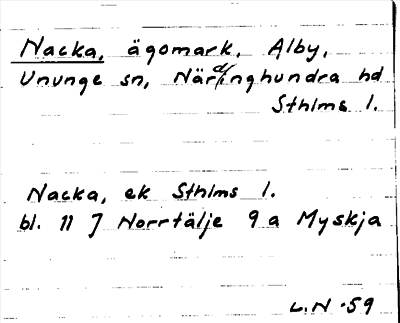 Nacka, ägomark, Alby,
Ununge sn, Närdinghundra hd
Sthlms l.
Nacka, ek Sthlms l.
bl. 11 J Norrtälje 9 a Myskja
L.N -59